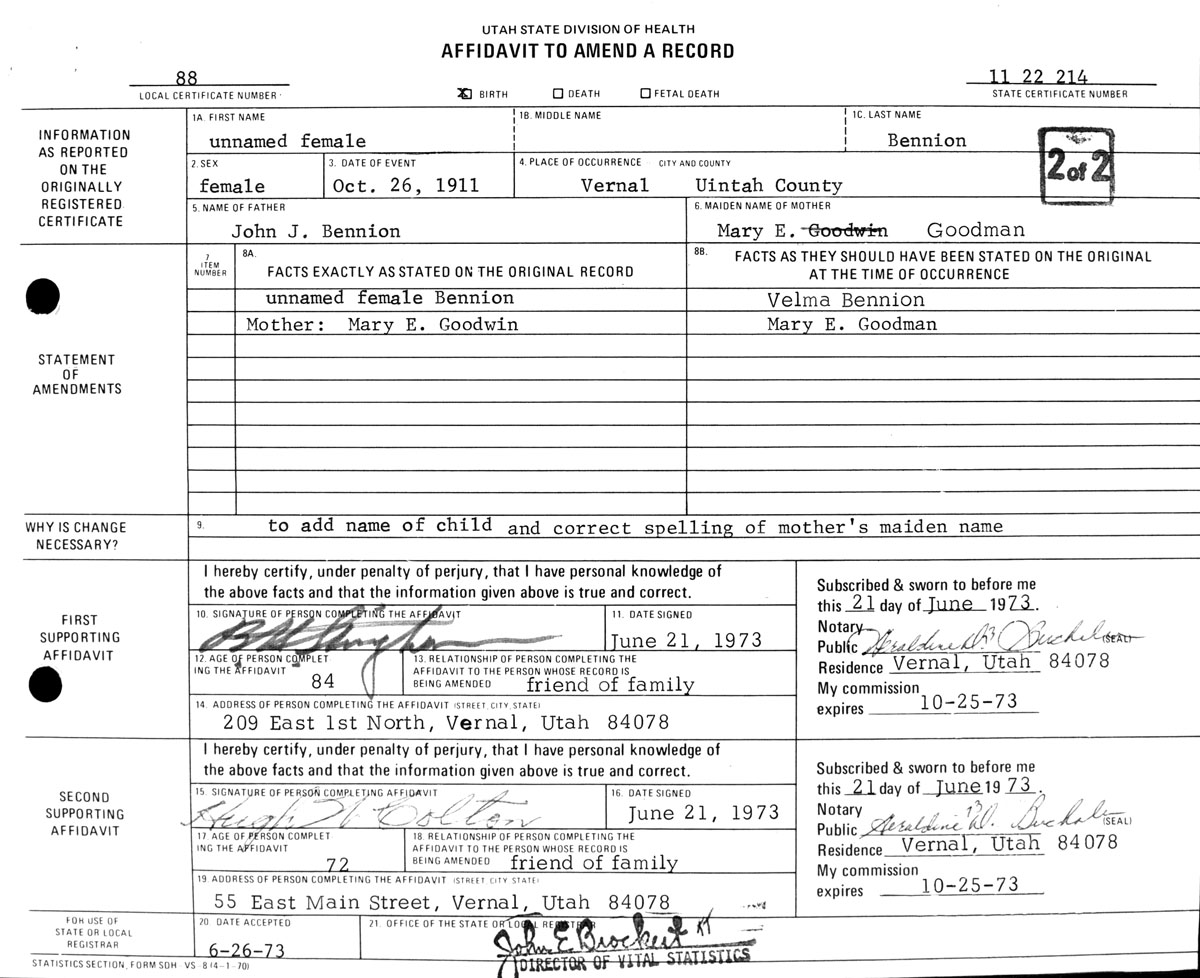 UTAH STATE DIVISION OF HEALTH
AFFIDAVIT TO AMEND A RECORD
88
LOCAL CERTIFICATE NUMBER
☒ BIRTH ☐ DEATH ☐ FETAL DEATH
11 22 214
STATE CERTIFICATE NUMBER
INFORMATION
AS REPORTED
ON THE
ORIGINALLY
REGISTERED
CERTIFICATE
1A. FIRST NAME
unnamed female
1B. MIDDLE NAME
1C. LAST NAME
Bennion
2 of 2
2. SEX
female
3. DATE OF EVENT
Oct. 26, 1911
4. PLACE OF OCCURRENCE CITY AND COUNTY
Vernal Uintah County
5. NAME OF FATHER
John J. Bennion
6. MAIDEN NAME OF MOTHER
Mary E. Goodwin Goodman
STATEMENT
OF
AMENDMENTS
7
ITEM
NUMBER
8A.
FACTS EXACTLY AS STATED ON THE ORIGINAL RECORD
8B. FACTS AS THEY SHOULD HAVE BEEN STATED ON THE ORIGINAL
AT THE TIME OF OCCURRENCE
unnamed female Bennion
Velma Bennion
Mother: Mary E. Goodwin
Mary E. Goodman
WHY IS CHANGE
NECESSARY?
9. to add name of child and correct spelling of mother's maiden name
FIRST
SUPPORTING
AFFIDAVIT
I hereby certify, under penalty of perjury, that I have personal knowledge of
the above facts and that the information given above is true and correct.
10. SIGNATURE OF PERSON COMPLETING THE AFFIDAVIT
11. DATE SIGNED
June 21, 1973
12. AGE OF PERSON COMPLET
ING THE AFFIDAVIT
84
13. RELATIONSHIP OF PERSON COMPLETING THE
AFFIDAVIT TO THE PERSON WHOSE RECORD IS
BEING AMENDED friend of family
14. ADDRESS OF PERSON COMPLETING THE AFFIDAVIT (STREET, CITY, STATE)
209 East 1st North, Vernal, Utah 84078
Subscribed & sworn to before me
this 21 day of June 1973.
Notary
Public Geraldine (SEAL)
Residence Vernal, Utah 84078
My commission
expires 10-25-73
SECOND
SUPPORTING
AFFIDAVIT
I hereby certify, under penalty of perjury, that I have personal knowledge of
the above facts and that the information given above is true and correct.
15. SIGNATURE OF PERSON COMPLETING AFFIDAVIT
Hugh W Colton
16. DATE SIGNED
June 21, 1973
17. AGE OF PERSON COMPLET
ING THE AFFIDAVIT
72
18. RELATIONSHIP OF PERSON COMPLETING THE
AFFIDAVIT TO THE PERSON WHOSE RECORD IS
BEING AMENDED friend of family
19. ADDRESS OF PERSON COMPLETING THE AFFIDAVIT (STREET, CITY, STATE)
55 East Main Street, Vernal, Utah 84078
Subscribed & sworn to before me
this 21 day of June 1973.
Notary
Public Geraldine (SEAL)
Residence Vernal, Utah 84078
My commission
expires 10-25-73
FOR USE OF
STATE OR LOCAL
REGISTRAR
20 DATE ACCEPTED
6-26-73
21. OFFICE OF THE STATE OR LOCAL REGISTRAR
John E Brockert
DIRECTOR OF VITAL STATISTICS
STATISTICS SECTION, FORM SDH - VS - 8 (4-1-70)